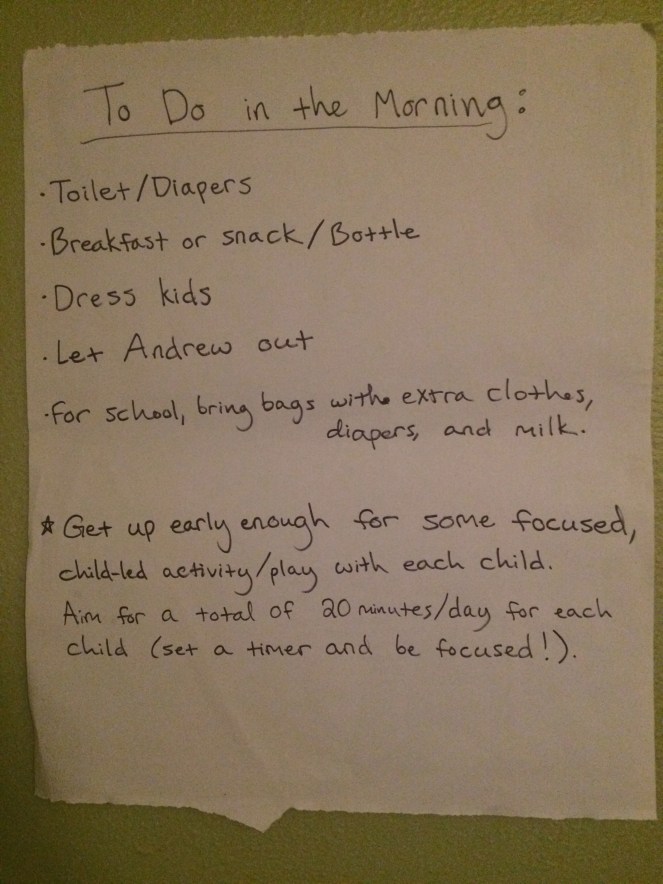 To Do in the Morning:
· Toilet/Diapers
· Breakfast or snack/Bottle
· Dress kids
· Let Andrew out
· For school, bring bags with extra clothes,
diapers, and milk.
☆ Get up early enough for some focused,
child-led activity/play with each child.
Aim for a total of 20 minutes/day for each
child (set a timer and be focused!).